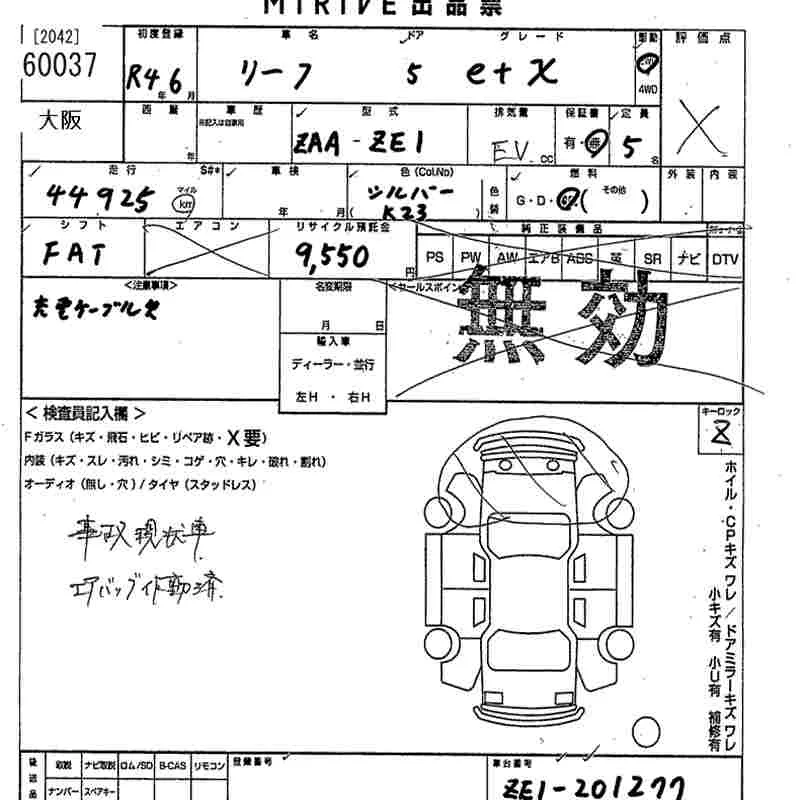 MIRIVE 出品票
[2042]
60037
大阪
初度登録
R4年6月
車名
リーフ
ドア
5
グレード
e+ X
駆動
2WD
4WD
評価点
X
車歴
※記入は自家用
年
型式
ZAA-ZE1
排気量
EV cc
保証書
有・無
定員
5名
走行
S#*
44925
マイル
km
車検
年 月
色(Col.No)
シルバー
(K23)
色替
燃料
G・D・
(その他 )
外装
内装
シフト
FAT
エアコン
リサイクル預託金
9,550円
純正装備品
PS PW AW エアB ABS 革 SR ナビ DTV
<注意事項>
充電ケーブル欠
名変期限
月 日
輸入車
ディーラー・並行
左H ・ 右H
<セールスポイント>
無効
<検査員記入欄>
Fガラス(キズ・飛石・ヒビ・リペア跡・X要)
内装(キズ・スレ・汚れ・シミ・コゲ・穴・キレ・破れ・割れ)
オーディオ(無し・穴)/タイヤ(スタッドレス)
事故現状車
エアバッグ作動済
キーロック
ホイル・CPキズ ワレ/ドアミラーキズ ワレ
小キズ有 小U有 補修有
後送品
取説 ナビ取説 ロム/SD B-CAS リモコン
ナンバー スペアキー
登録番号
車台番号
ZE1-201277